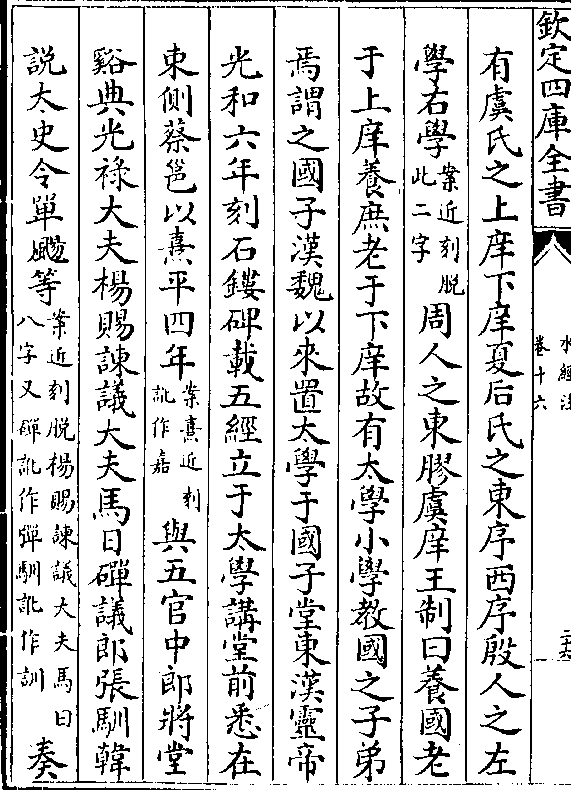 欽定四庫全書
水經注
卷十六
有虞氏之上庠下庠夏后氏之東序西序殷人之左
學右學案近刻脫此二字周人之東膠虞庠王制曰養國老
于上庠養庶老于下庠故有太學小學教國之子弟
焉謂之國子漢魏以來置太學于國子堂東漢靈帝
光和六年刻石鏤碑載五經立于太學講堂前悉在
東側蔡邕以熹平四年案熹近刻訛作嘉與五官中郎將堂
谿典光祿大夫楊賜諫議大夫馬日磾議郎張馴韓
說太史令單颺等案近刻脫楊賜諫議大夫馬日八字又磾訛作彈馴訛作訓奏